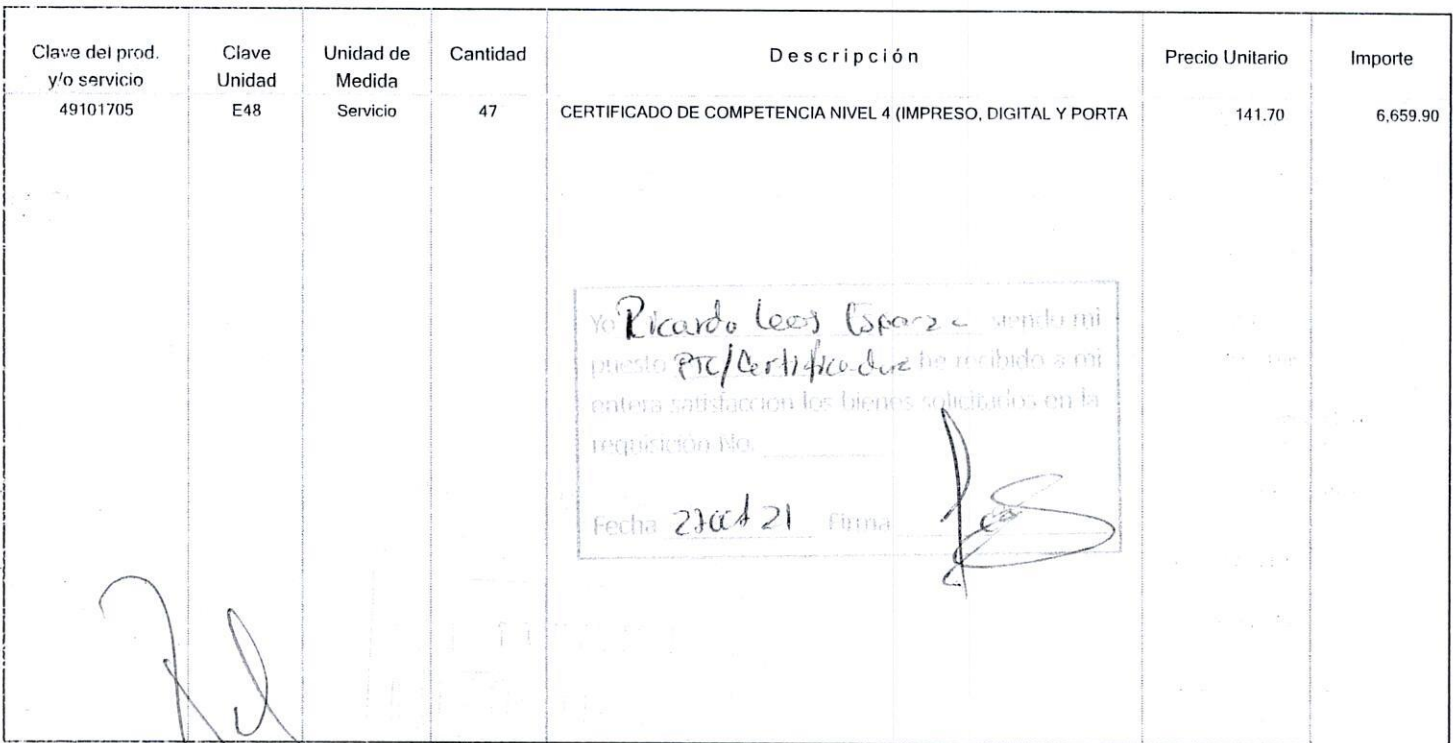 Clave del prod. y/o servicio
Clave Unidad
Unidad de Medida
Cantidad
Descripción
Precio Unitario
Importe
49101705
E48
Servicio
47
CERTIFICADO DE COMPETENCIA NIVEL 4 (IMPRESO, DIGITAL Y PORTA
141.70
6,659.90
Yo Ricardo Leos Esparza siendo mi
puesto PTC/Certificadora he recibido a mi
entera satisfaccion los bienes solicitados en la
requisición No.
Fecha 27 oct 21 Firma